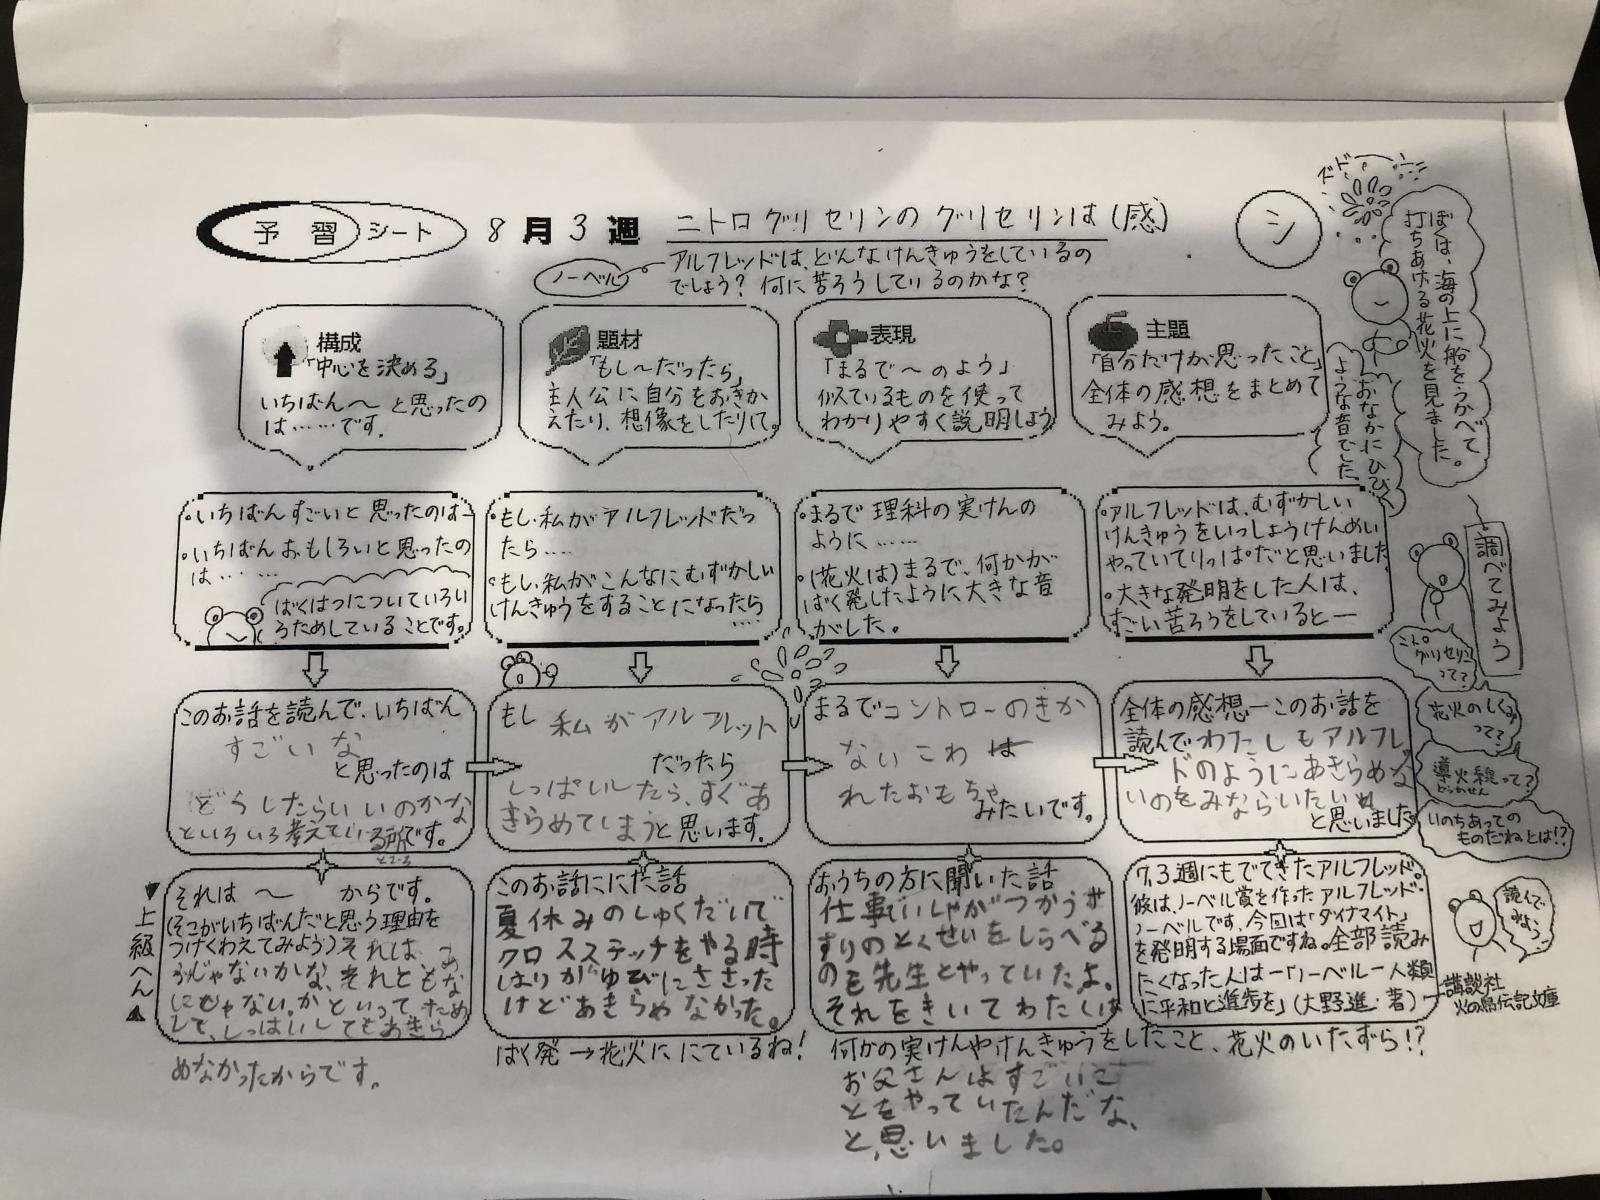 予習シート 8月3週 ニトログリセリンのグリセリンは(感)
シ
ノーベル
アルフレッドは、どんなけんきゅうをしているの
でしょう?何に苦ろうしているのかな?
構成
「中心を決める」
いちばん〜と思ったの
は……です。
題材
「もし〜だったら」
主人公に自分をおきか
えたり、想像をしたりして。
表現
「まるで〜のよう」
似ているものを使って
わかりやすく説明しよう
主題
「自分だけが思ったこと」
全体の感想をまとめて
みよう。
ドド
ぼくは、海の上に船をうかべて
打ちあげる花火を見ました。
おなかにひびく
ような音でした。
・いちばんすごいと思ったのは
・いちばんおもしろいと思ったの
は……
ばくはつについていろい
ろためしていることです。
・もし、私がアルフレッドだっ
たら……
・もし、私がこんなにむずかしい
けんきゅうをすることになったら
……
・まるで理科の実けんの
ように……
・(花火は)まるで、何かが
ばく発したように大きな音
がした。
・アルフレッドは、むずかしい
けんきゅうをいっしょうけんめい
やっていてりっぱだと思いました
・大きな発明をした人は、
すごい苦ろうをしていると—
調べてみよう
ニトロ
グリセリン
って?
花火のしくみ
って?
導火線って?
どうかせん
いのちあっての
ものだねとは!?
このお話を読んで、いちばん
すごいな
と思ったのは
どうしたらいいのかな
といろいろ考えている所です。
ところ
もし 私がアルフレット
だったら
しっぱいしたら、すぐあ
きらめてしまうと思います。
まるでコントローのきか
ないこわ
れたおもちゃ
みたいです。
全体の感想—このお話を
読んでわたしもアルフレ
ドのようにあきらめな
いのをみならいたい
と思いました
上級へん
それは 〜 からです。
(そこがいちばんだと思う理由を
つけくわえてみよう)それは、あ
ぶじゃないかな、それともな
にじゃない。かといって、ため
して、しっぱいしてもあきら
めなかったからです。
このお話ににた話
夏休みのしゅくだいで
クロスステッチをやる時
はりがゆびにささった
けどあきらめなかった。
ばく発→花火ににているね!
おうちの方に聞いた話
仕事でいしゃがつかう
すりのとくせいをしらべる
のを先生とやっていたよ。
それをきいてわたしは
何かの実けんやけんきゅうをしたこと、花火のいたずら!?
お父さんはすごいこ
とをやっていたんだな、
と、思いました。
7,3週にもでてきたアルフレッド。
彼は、ノーベル賞を作ったアルフレッド・
ノーベルです。今回は「ダイナマイト」
を発明する場面ですね。全部読み
たくなった人は—「ノーベルー人類
に平和と進歩を」(大野進・著)
読んで
みよう
講談社
火の鳥伝記文庫